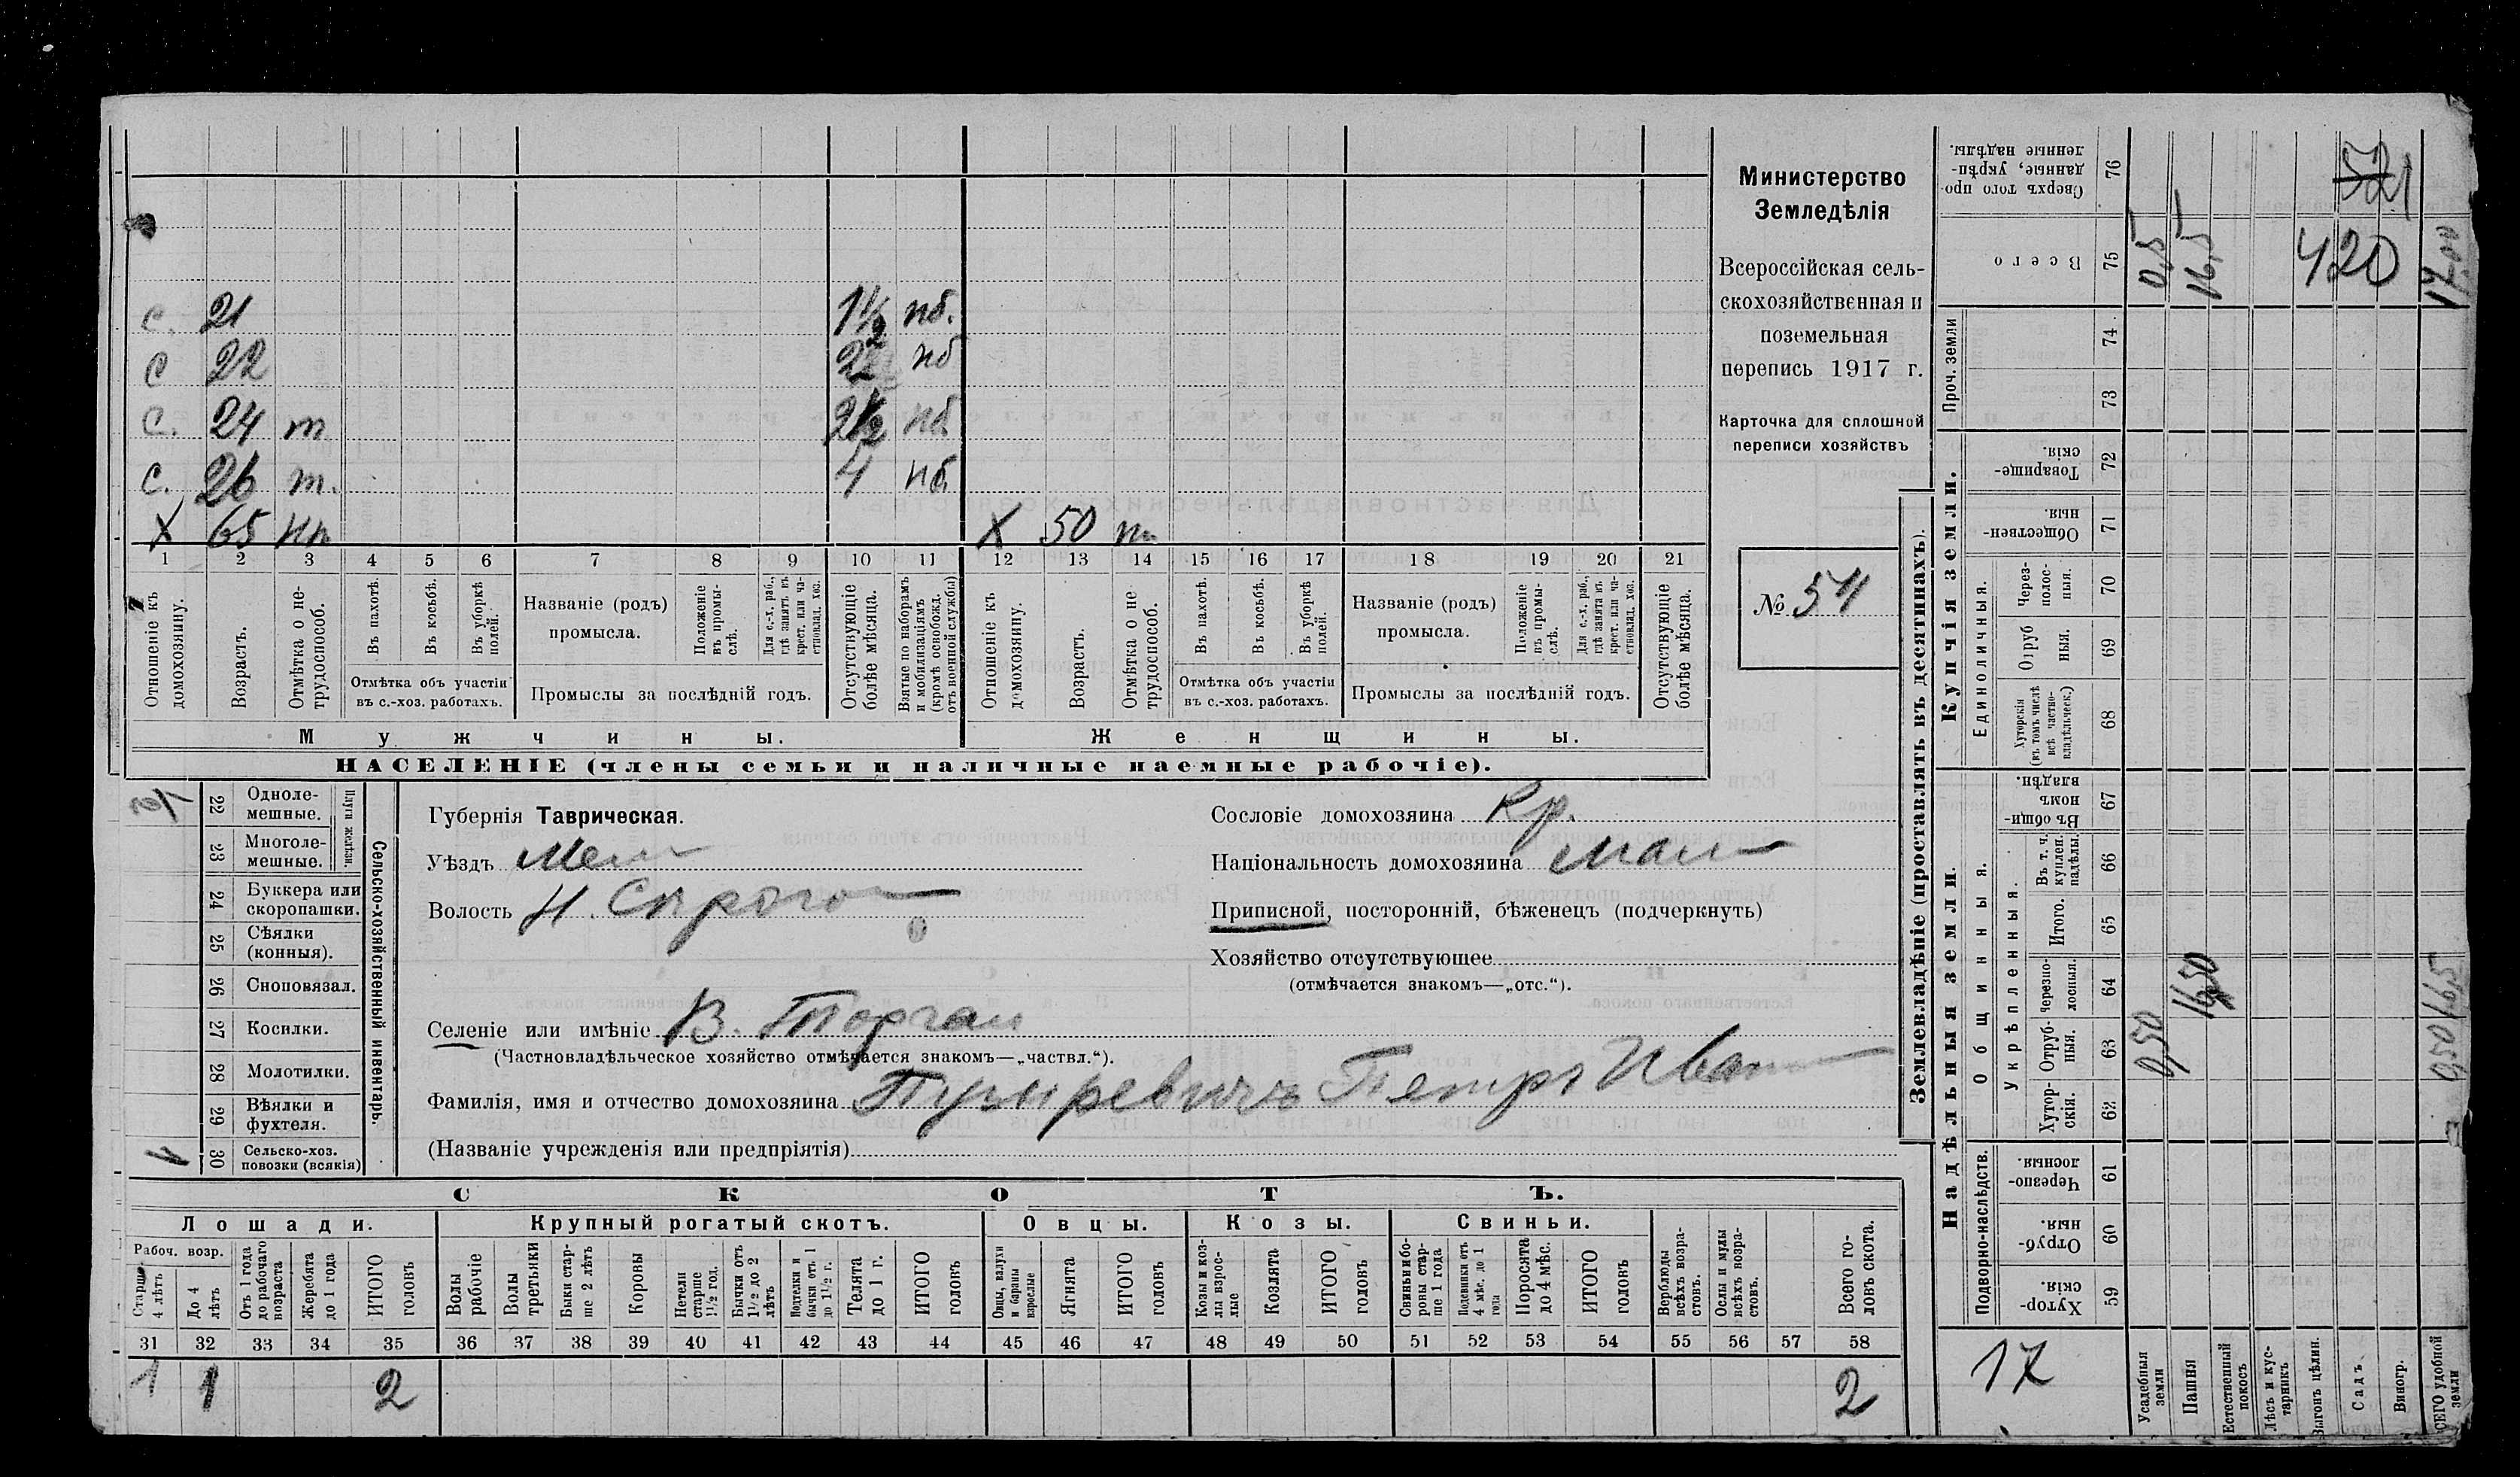 с. 21 1½ нб.
с 22 2½ нб
с. 24 т 2½ нб
с. 26 т. 4 нб.
Х 65 нп Х 50 т
1 2 3 4 5 6 7 8 9 10 11 12 13 14 15 16 17 18 19 20 21
Отношеніе къ домохозяину.
Возрастъ.
Отмѣтка о не-
трудоспособ.
Въ пахотѣ.
Въ косьбѣ.
Въ уборкѣ
полей.
Отмѣтка объ участіи
въ с.-хоз. работахъ.
Названіе (родъ)
промысла.
Положеніе
въ промы-
слѣ.
Для с.-х. раб.,
гдѣ занятъ въ
крест. или ча-
стновлад. хоз.
Промыслы за послѣдній годъ.
Отсутствующіе
болѣе мѣсяца.
Взятые по наборамъ
и мобилизаціямъ
(кромѣ освобожд.
отъ военной службы)
Отношеніе къ
домохозяину.
Возрастъ.
Отмѣтка о не-
трудоспособ.
Въ пахотѣ.
Въ косьбѣ.
Въ уборкѣ
полей.
Отмѣтка объ участіи
въ с.-хоз. работахъ.
Названіе (родъ)
промысла.
Положеніе
въ промы-
слѣ.
Для с.-х. раб.,
гдѣ занята въ
крест. или ча-
стновлад. хоз.
Промыслы за послѣдній годъ.
Отсутствующіе
болѣе мѣсяца.
Мужчины.
Женщины.
НАСЕЛЕНІЕ (члены семьи и наличные наемные рабочіе).
Министерство
Земледѣлія
Всероссійская сель-
скохозяйственная и
поземельная
перепись 1917 г.
Карточка для сплошной
переписи хозяйствъ
№ 54
22 Одноле-
мешные.
23 Многоле-
мешные.
Плуги желѣзн.
24 Буккера или
скоропашки.
25 Сѣялки
(конныя).
26 Сноповязал.
27 Косилки.
28 Молотилки.
29 Вѣялки и
фухтеля.
30 Сельско-хоз.
повозки (всякія)
Сельско-хозяйственный инвентарь.
Губернія Таврическая.
Уѣздъ Мел
Волость Н. Сѣрого
Селеніе или имѣніе В. Торгаи
(Частновладѣльческое хозяйство отмѣчается знакомъ—„частвл.“).
Фамилія, имя и отчество домохозяина Петръ Иван
(Названіе учрежденія или предпріятія)
Сословіе домохозяина Кр.
Національность домохозяина мал
Приписной, посторонній, бѣженецъ (подчеркнуть)
Хозяйство отсутствующее
(отмѣчается знакомъ—„отс.“).
СКОТЪ.
Лошади.
Рабоч. возр.
Старше
4 лѣтъ
До 4
лѣтъ
Отъ 1 года
до рабочаго
возраста
Жеребята
до 1 года
ИТОГО
головъ
Крупный рогатый скотъ.
Волы
рабочіе
Волы
третьяки
Быки стар-
ше 2 лѣтъ
Коровы
Нетели
старше
1½ год.
Бычки отъ
1½ до 2
лѣтъ
Подтелки и
бычки отъ 1
до 1½ г.
Телята
до 1 г.
ИТОГО
головъ
Овцы.
Овцы, валухи
и бараны
взрослые
Ягнята
ИТОГО
головъ
Козы.
Козы и коз-
лы взрос-
лые
Козлята
ИТОГО
головъ
Свиньи.
Свиньи и бо-
ровы стар-
ше 1 года
Подсвинки отъ
4 мѣс. до 1
года
Поросята
до 4 мѣс.
ИТОГО
головъ
Верблюды
всѣхъ возра-
стовъ.
Ослы и мулы
всѣхъ возра-
стовъ.
Всего го-
ловъ скота.
31 32 33 34 35 36 37 38 39 40 41 42 43 44 45 46 47 48 49 50 51 52 53 54 55 56 57 58
1 1 2 2
Землевладѣніе (проставлять въ десятинахъ).
Купчія земли.
Надѣльныя земли.
Сверхъ того про-
данные, укрѣп-
ленные надѣлы. 76
521
Всего 75
0,5 16,5 420 17,00
Проч. земли 74 73
Товарище-
скія. 72
Обществен-
ныя. 71
Единоличныя.
Через-
полос-
ныя. 70
Отруб
ныя. 69
Хуторскія
(въ томъ числѣ
всѣ частно-
владѣльческ.) 68
Общинныя.
Въ общи-
номъ
владѣн. 67
Укрѣпленныя.
Въ т. ч.
куплен.
надѣлы. 66
Итого. 65
Черезпо-
лосныя. 64
16,50
Отруб-
ныя. 63
0,50
Хутор-
скія. 62
Подворно-наслѣдств.
Черезпо-
лосныя. 61
Отруб-
ныя. 60
Хутор-
скія. 59
17
Усадебныя
земли
Пашня
Естественный
покосъ
Лѣсъ и кус-
тарникъ
Выгонъ цѣлин.
Садъ
Виногр.
ВСЕГО удобной
земли